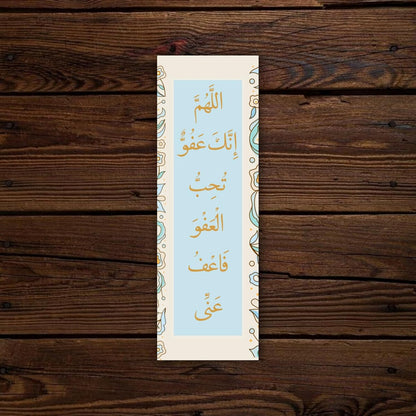 اللَّهُمَّ
إِنَّكَ عَفُوٌّ
تُحِبُّ
الْعَفْوَ
فَاعْفُ
عَنِّي